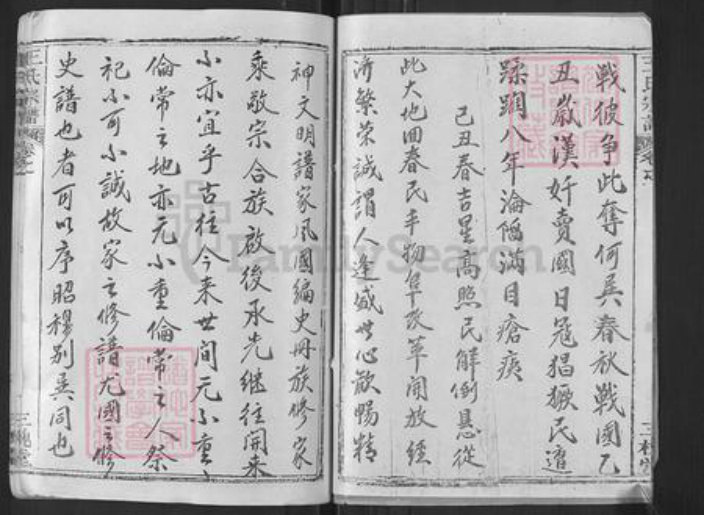 戦彼争此奪何异春秋戰國乙
丑歲漢奸賣國日冠猖獗民遭
蹂躪八年淪陷滿目瘡痍
己丑春吉星高照民解倒悬從
此大地回春民丰物阜改革開放經
济繁荣誠謂人逢盛世心歡暢精
神文明譜家风國編史冊族修家
乘敬宗合族啟後承先继往開来
小亦宜乎古往今来世间无小重
倫常之地亦无小重倫常之人祭
祀小可小誠故家之修譜尤國之修
史譜也者可以序昭穆别异同也
王氏宗譜
三槐堂
FamilySearch